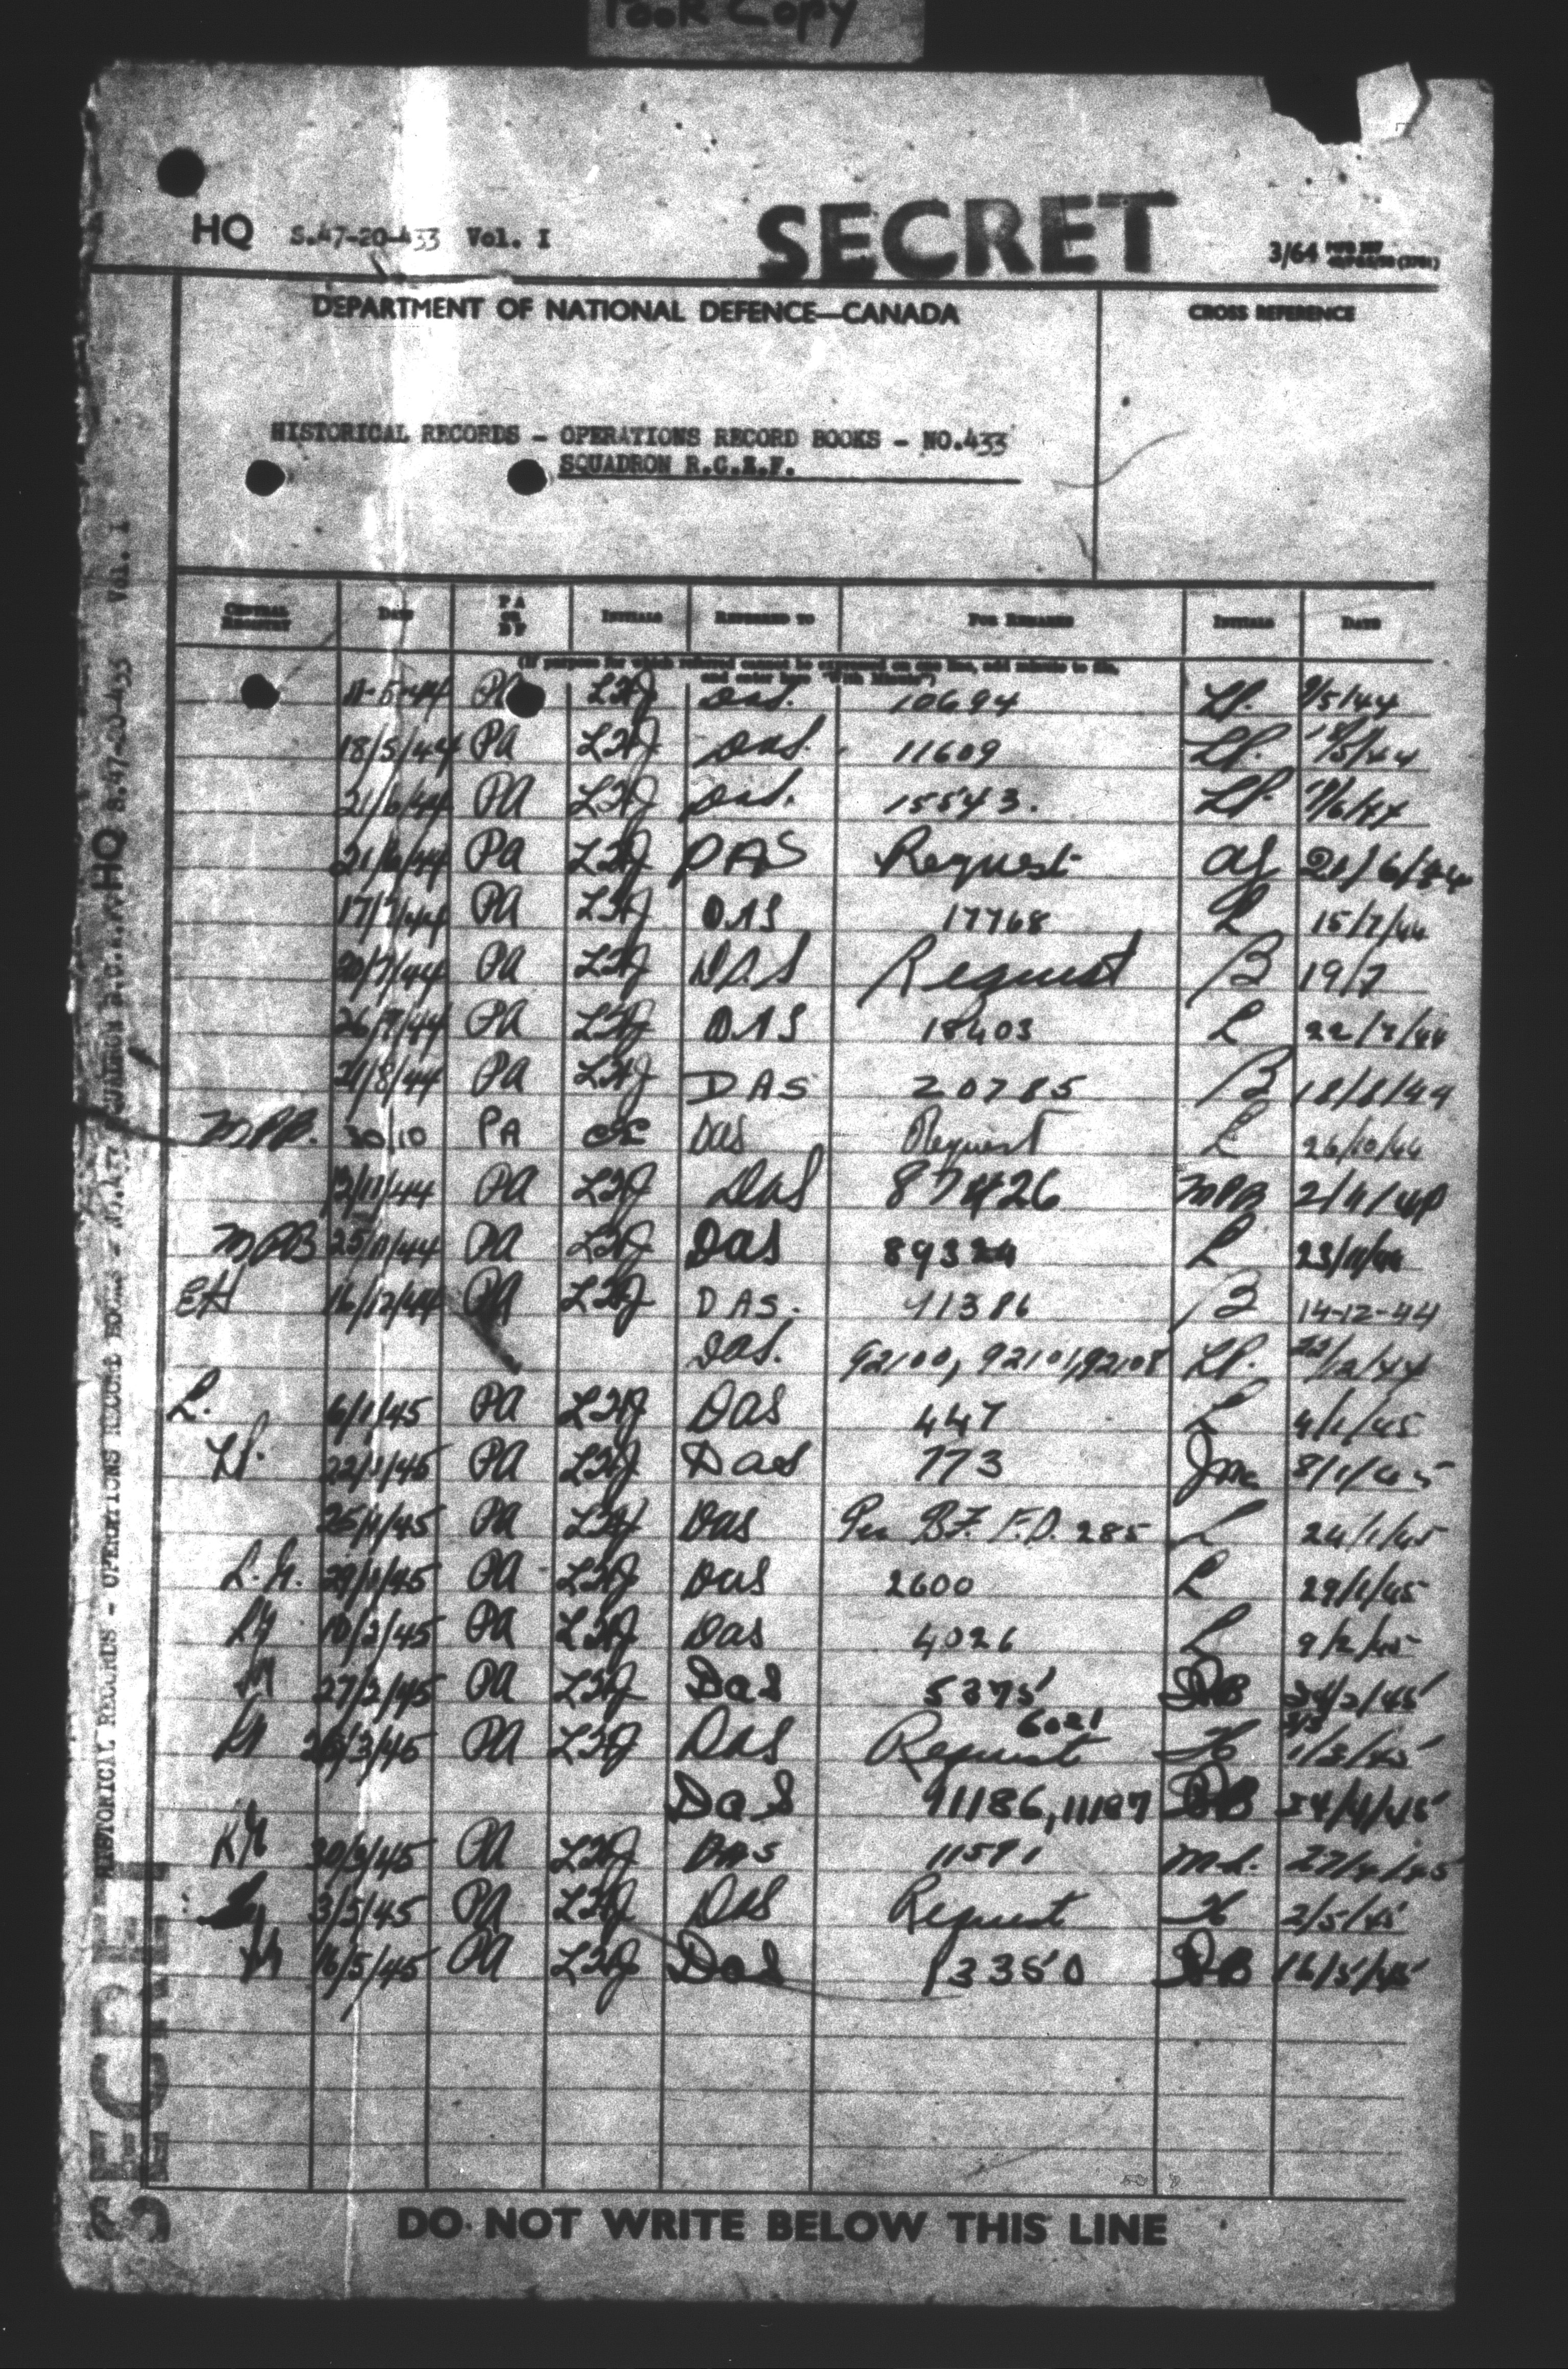 Poor Copy
HQ S.47-20-433 Vol. I
SECRET
3/64
DEPARTMENT OF NATIONAL DEFENCE—CANADA
CROSS REFERENCE
HISTORICAL RECORDS - OPERATIONS RECORD BOOKS - NO.433
SQUADRON R.C.A.F.
CENTRAL REGISTRY DATE P A OR B F INITIALS REFERRED TO FOR REMARKS INITIALS DATE
(If purpose for which referred cannot be expressed on one line, add minute to file,
and enter here "With Minute")
11-5-44 PA DAS. 10694 /5/44
18/5/44 PA DAS. 11609 18/5/44
21/6/44 PA DAS. 15543. /6/44
21/6/44 PA DAS Request 21/6/44
17/7/44 PA DAS 17768 L 15/7/44
20/7/44 PA DAS Request B 19/7
26/7/44 PA DAS 18403 L 22/7/44
21/8/44 PA DAS 20785 B 18/8/44
MPB. 30/10 PA DAS Request L 26/10/44
12/11/44 PA DAS 87426 MPB 2/11/44
MPB 25/11/44 PA DAS 89324 L 23/11/44
EH 16/12/44 PA DAS. 91386 B 14-12-44
DAS. 92100, 92101, 92108 /12/44
L. 6/1/45 PA DAS 447 L 4/1/45
22/1/45 PA DAS 773 Jmc 8/1/45
25/1/45 PA DAS Per B.F. F.D. 285 L 24/1/45
29/1/45 PA DAS 2600 L 29/1/45
10/2/45 PA DAS 4026 L 9/2/45
27/2/45 PA DAS 5375 DB 24/2/45
6021
26/3/45 PA DAS Request H 1/3/45
DAS 11186, 11187 DB 24/4/45
PA DAS 11591 M.L. 27/4/45
3/5/45 PA DAS Request H 2/5/45
16/5/45 PA DAS 13350 DB 16/5/45
DO NOT WRITE BELOW THIS LINE
SECRET HISTORICAL RECORDS - OPERATIONS RECORD BOOKS - NO.433 SQUADRON R.C.A.F. HQ S.47-20-433 Vol. I